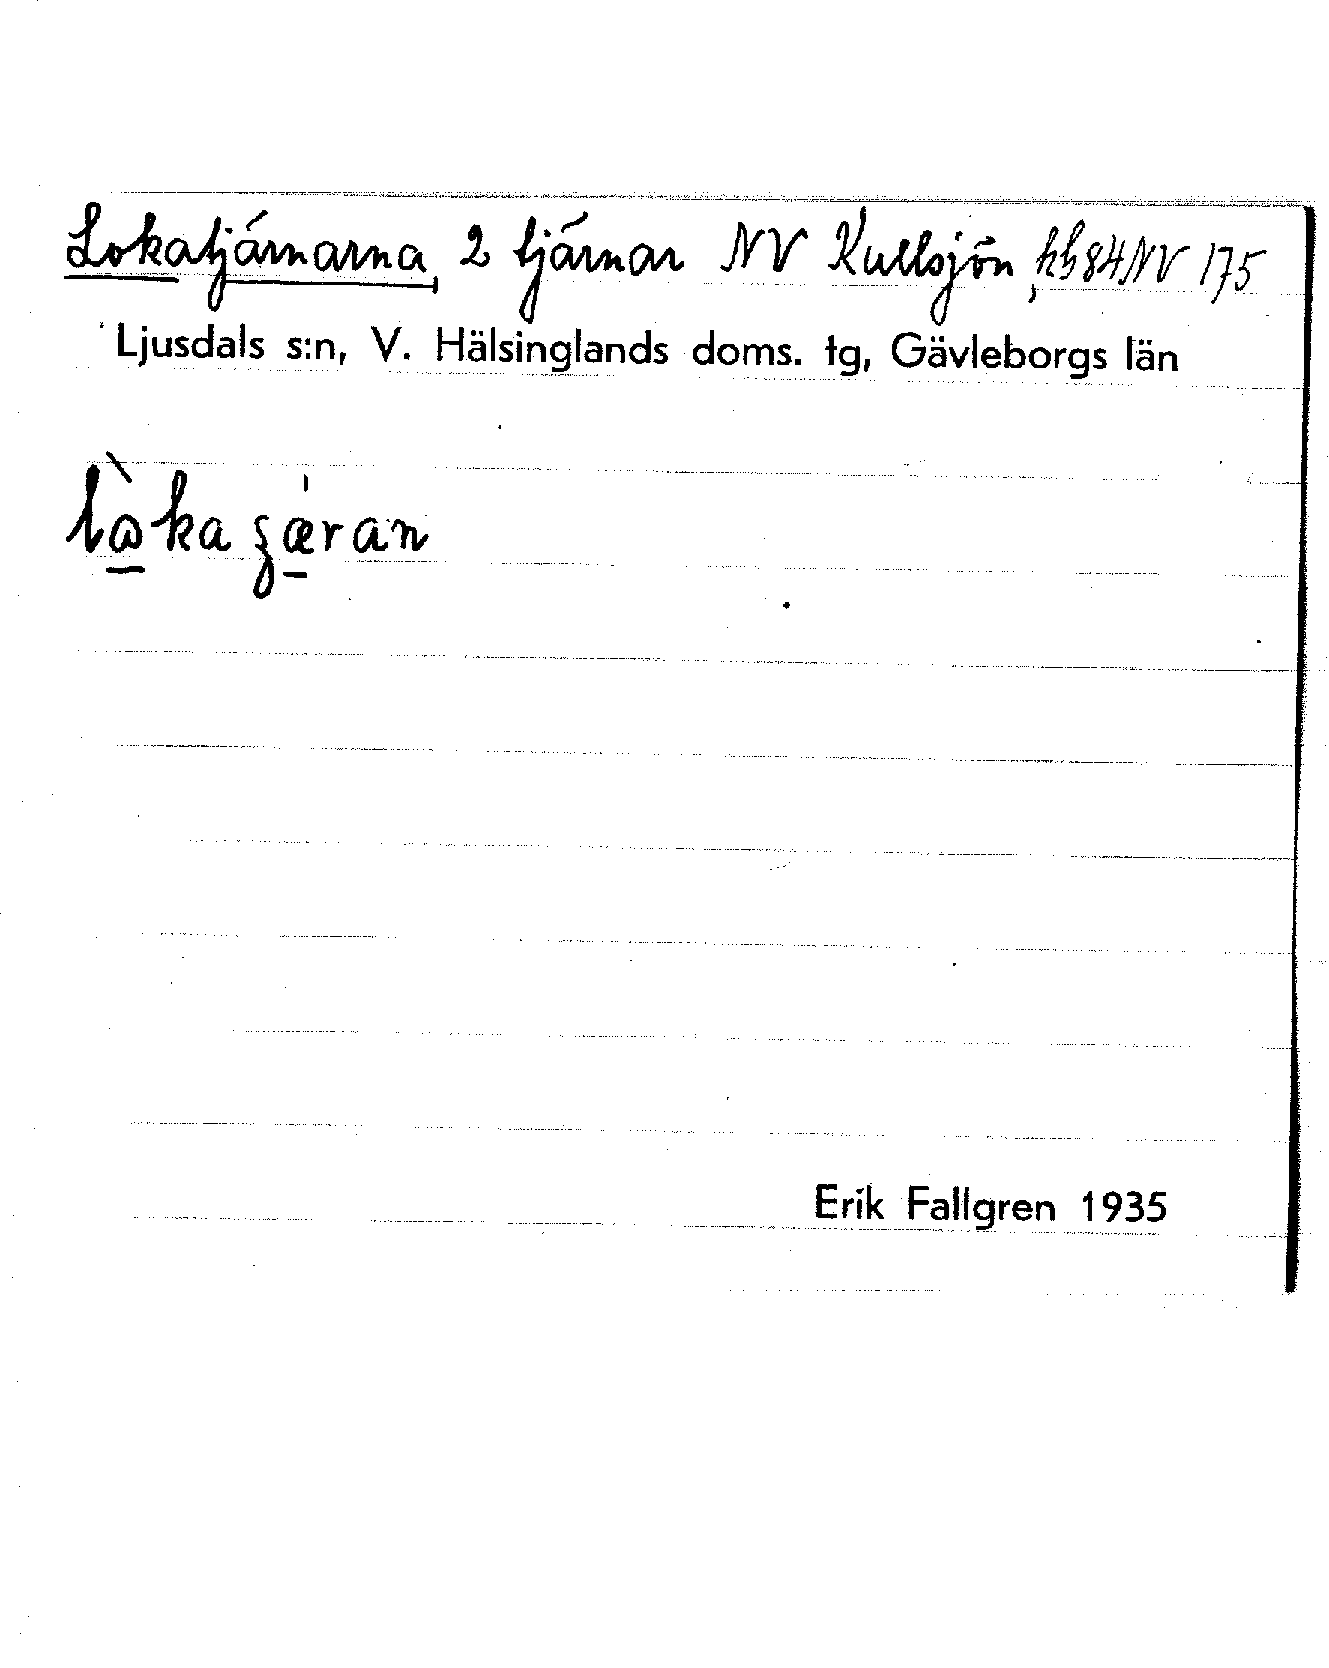 Lokatjärnarna, 2 tjärnar NV Kullsjön, hb 84 NV 175
Ljusdals s:n, V. Hälsinglands doms. tg, Gävleborgs län
Erik Fallgren 1935